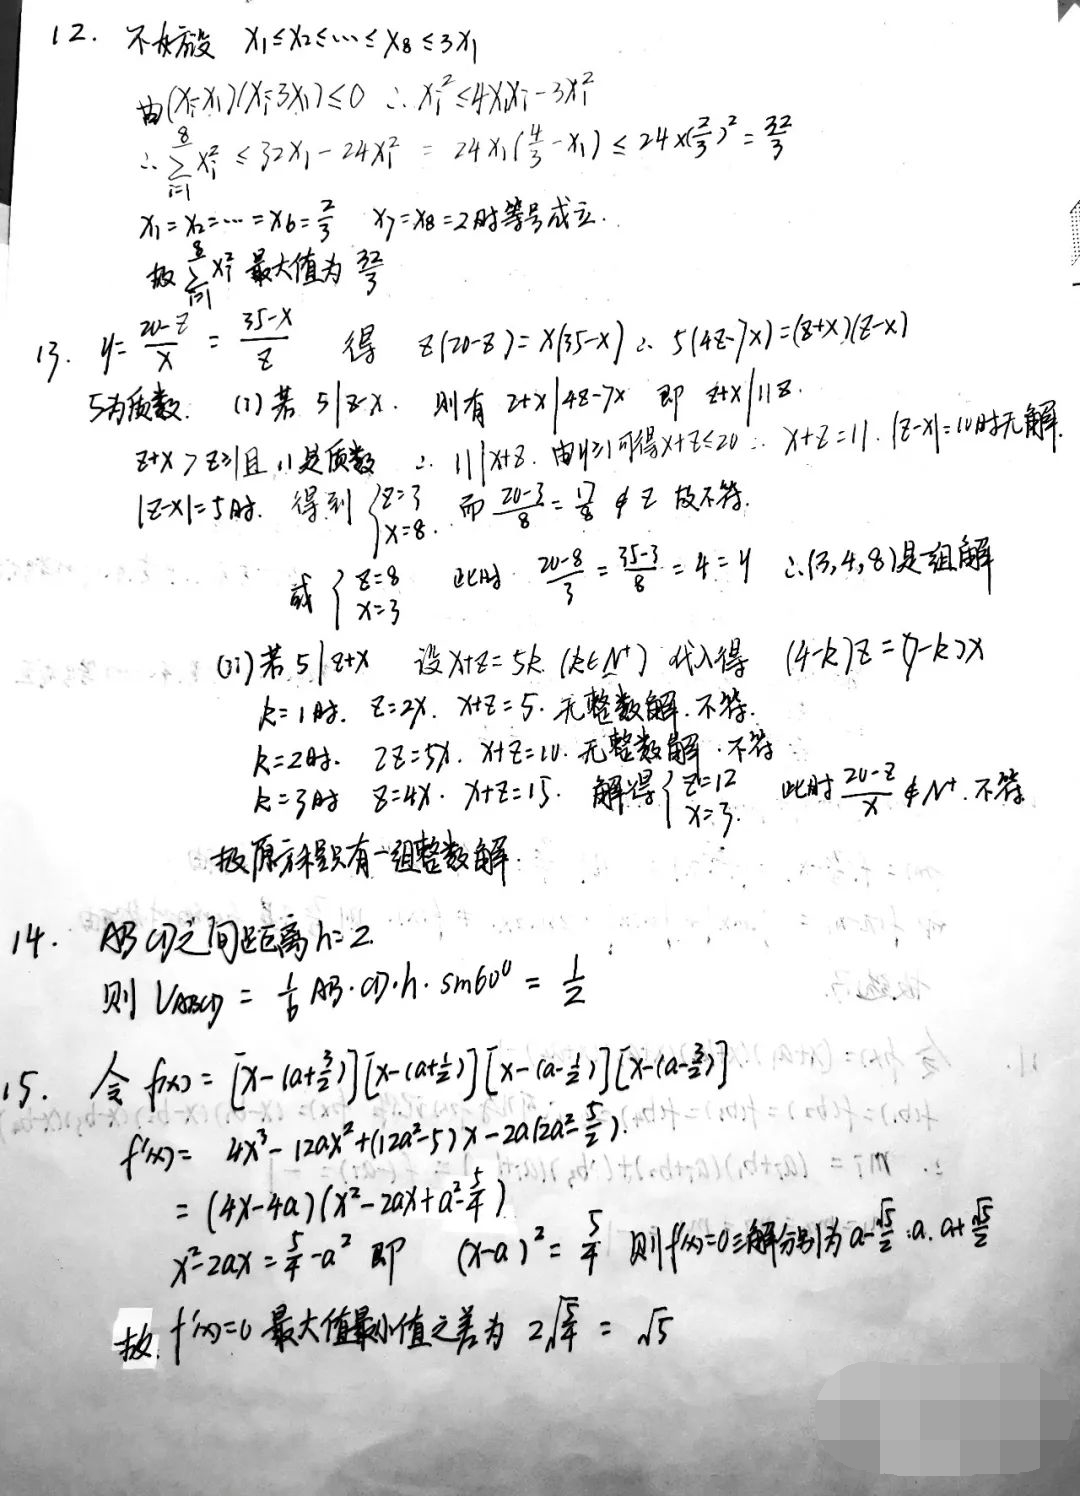 12. 不妨设 x₁≤x₂≤…≤x₈≤3x₁
由(xᵢ-x₁)(xᵢ-3x₁)≤0 ∴ xᵢ²≤4x₁xᵢ-3x₁²
∴ ∑_{i=1}^{8} xᵢ² ≤ 32x₁-24x₁² = 24x₁(4/3-x₁) ≤ 24×(2/3)² = 32/3
x₁=x₂=…=x₆=2/3 x₇=x₈=2时等号成立.
故 ∑_{i=1}^{8} xᵢ² 最大值为 32/3
13. y= (20-z)/x = (35-x)/z 得 z(20-z)=x(35-x) ∴ 5(4z-7x)=(z+x)(z-x)
5为质数. (i) 若 5|z-x. 则有 z+x|4z-7x 即 z+x|11z.
z+x>z≥1且 11是质数 ∴ 11|x+z. 由y≥1可得x+z≤20 ∴ x+z=11. |z-x|=10时无解.
|z-x|=5时. 得到 { z=3 x=8. 而 (20-3)/8 = 17/8 ∉ Z 故不符.
或 { z=8 x=3 此时 (20-8)/3 = (35-3)/8 = 4 = y ∴(3,4,8)是一组解
(ii) 若 5|z+x 设x+z=5k (k∈N⁺) 代入得 (4-k)z=(7-k)x
k=1时. z=2x. x+z=5. 无整数解. 不符.
k=2时. 2z=5x. x+z=10. 无整数解. 不符
k=3时 z=4x. x+z=15. 解得 { z=12 x=3. 此时 (20-z)/x ∉ N⁺. 不符
故原方程只有一组整数解.
14. AB CD之间距离h=2.
则 V_{ABCD} = 1/6 AB·CD·h·sin60° = 1/2
15. 令 f(x) = [x-(a+3/2)][x-(a+1/2)][x-(a-1/2)][x-(a-3/2)]
f'(x) = 4x³-12ax²+(12a²-5)x-2a(2a²-5/2).
= (4x-4a)(x²-2ax+a²-5/4)
x²-2ax=5/4-a² 即 (x-a)²=5/4 则f'(x)=0三解分别为 a-√5/2, a. a+√5/2
故. f'(x)=0 最大值最小值之差为 2√(5/4) = √5